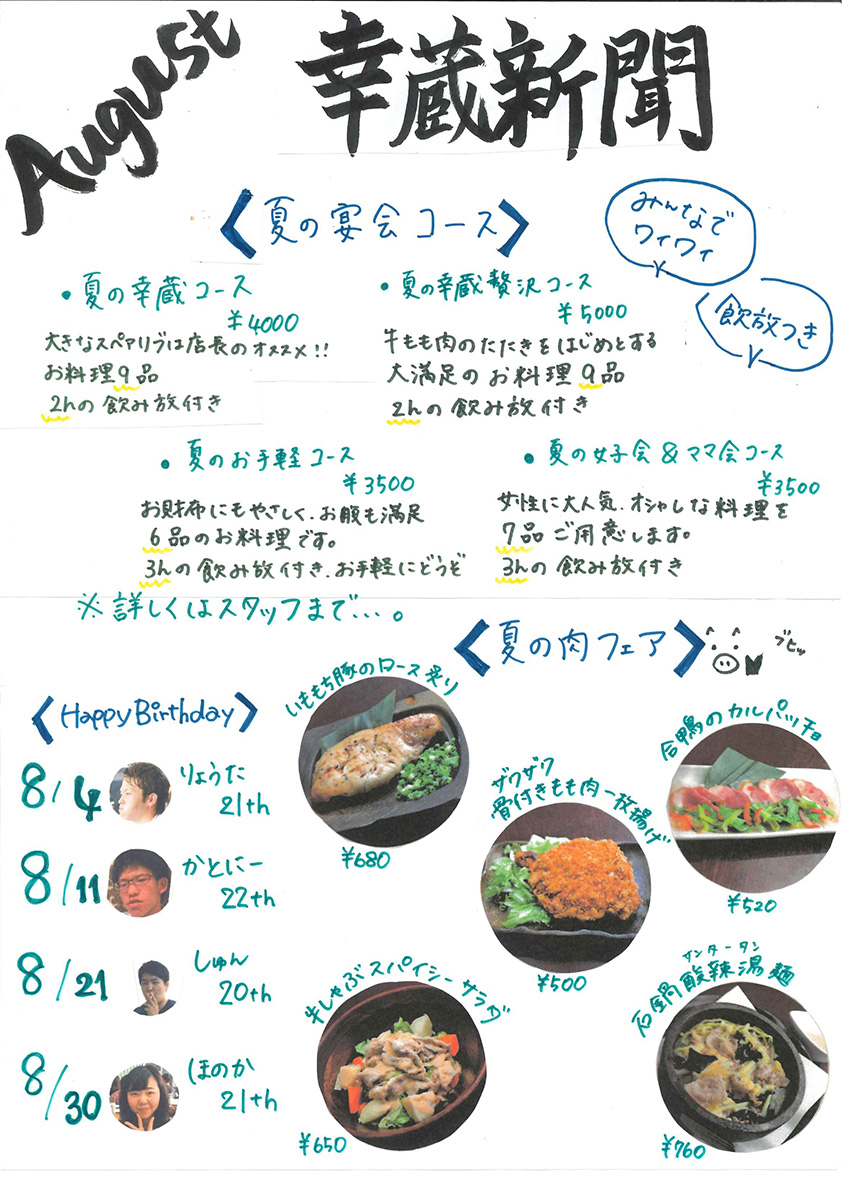 August
幸蔵新聞
〈夏の宴会コース〉
みんなで
ワイワイ
飲放つき
・夏の幸蔵コース
¥4000
大きなスペアリブは店長のオススメ!!
お料理9品
2hの飲み放付き
・夏の幸蔵贅沢コース
¥5000
牛もも肉のたたきをはじめとする
大満足のお料理9品
2hの飲み放付き
・夏のお手軽コース
¥3500
お財布にもやさしく、お腹も満足
6品のお料理です。
3hの飲み放付き、お手軽にどうぞ
・夏の女子会&ママ会コース
¥3500
女性に大人気、オシャレな料理を
7品ご用意します。
3hの飲み放付き
※詳しくはスタッフまで…。
〈夏の肉フェア〉
ブヒッ
〈Happy Birthday〉
8/4
りょうた
21th
8/11
かとにー
22th
8/21
しゅん
20th
8/30
ほのか
21th
いももち豚のロース炙り
¥680
ザクザク
骨付きもも肉一枚揚げ
¥500
合鴨のカルパッチョ
¥520
牛しゃぶスパイシーサラダ
¥650
サンータータン
石鍋酸辣湯麺
¥760